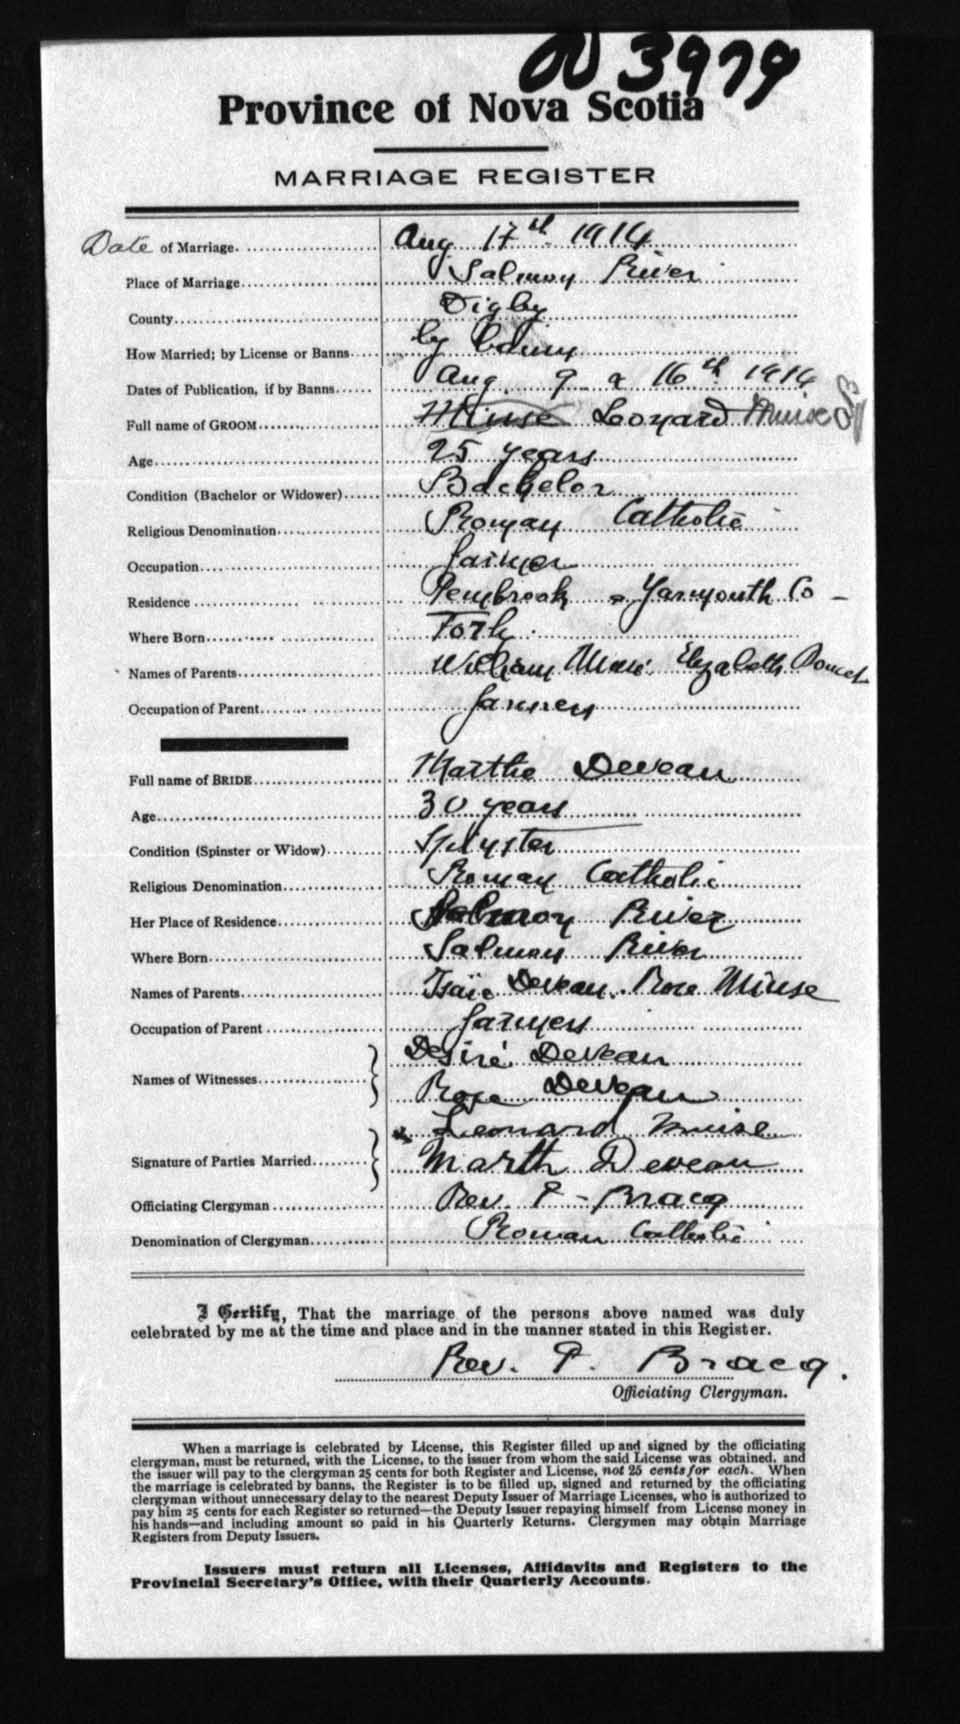 3979
Province of Nova Scotia
MARRIAGE REGISTER
Date of Marriage. Aug 17th 1914
Place of Marriage Salmon River
County Digby
How Married; by License or Banns by
Dates of Publication, if by Banns Aug. 9 & 16th 1914
Full name of GROOM Muise Leonard Muise
Age 25 years
Condition (Bachelor or Widower) Bachelor
Religious Denomination Roman Catholic
Occupation farmer
Residence Pembrook Yarmouth Co
Where Born
Names of Parents William Muise Elizabeth
Occupation of Parent farmers
Full name of BRIDE Marthe Deveau
Age 30 years
Condition (Spinster or Widow) Spinster
Religious Denomination Roman Catholic
Her Place of Residence Salmon River
Where Born Salmon River
Names of Parents Isaïe Deveau. Rose Miuse
Occupation of Parent farmers
Names of Witnesses Desiré Deveau
Rose Deveau
Leonard Muise
Signature of Parties Married Marth Deveau
Officiating Clergyman Rev. P - Bracq
Denomination of Clergyman Roman Catholic
I Certify, That the marriage of the persons above named was duly
celebrated by me at the time and place and in the manner stated in this Register.
Rev. P. Bracq.
Officiating Clergyman.
When a marriage is celebrated by License, this Register filled up and signed by the officiating
clergyman, must be returned, with the License, to the issuer from whom the said License was obtained, and
the issuer will pay to the clergyman 25 cents for both Register and License, not 25 cents for each. When
the marriage is celebrated by banns, the Register is to be filled up, signed and returned by the officiating
clergyman without unnecessary delay to the nearest Deputy Issuer of Marriage Licenses, who is authorized to
pay him 25 cents for each Register so returned—the Deputy Issuer repaying himself from License money in
his hands—and including amount so paid in his Quarterly Returns. Clergymen may obtain Marriage
Registers from Deputy Issuers.
Issuers must return all Licenses, Affidavits and Registers to the
Provincial Secretary's Office, with their Quarterly Accounts.